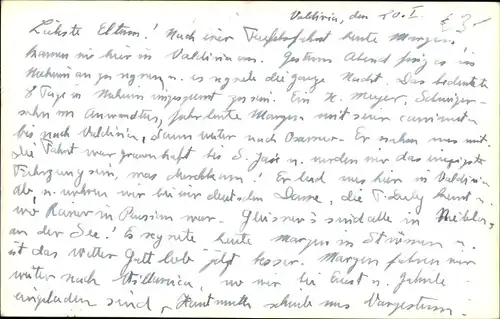 Valdivia, den 20. I. £ 3.-
Liebste Eltern! Nach einer Fahrt heute Morgen,
kamen wir hier in Valdivia an. Gestern Abend fing es in
an zu regnen u. es regnete die ganze Nacht. Das bedeutete
8 Tage in eingesperrt zu sein. Ein H. Meyer, Schwieger-
sohn von Anwandter, fuhr heute Morgen mit seiner camioneta
bis nach Valdivia, dann weiter nach Osorno. Er nahm uns mit.
die Fahrt war grauenhaft bis S. José u. wird das einzigste
Fahrzeug sein, was durchkam! Er lud uns hier in Valdivia
ab, u. wohnen wir bei einer deutschen Dame, die kennt u.
wo Rainer in Pension war. Gleisner's sind alle in Niebla,
an der See! Es regnete heute morgen in Strömen u.
ist das Wetter Gott lob jetzt besser. Morgen fahren wir
weiter nach, wo wir bei Ernst u.
eingeladen sind, Hartmuth schrieb uns Vorgestern!